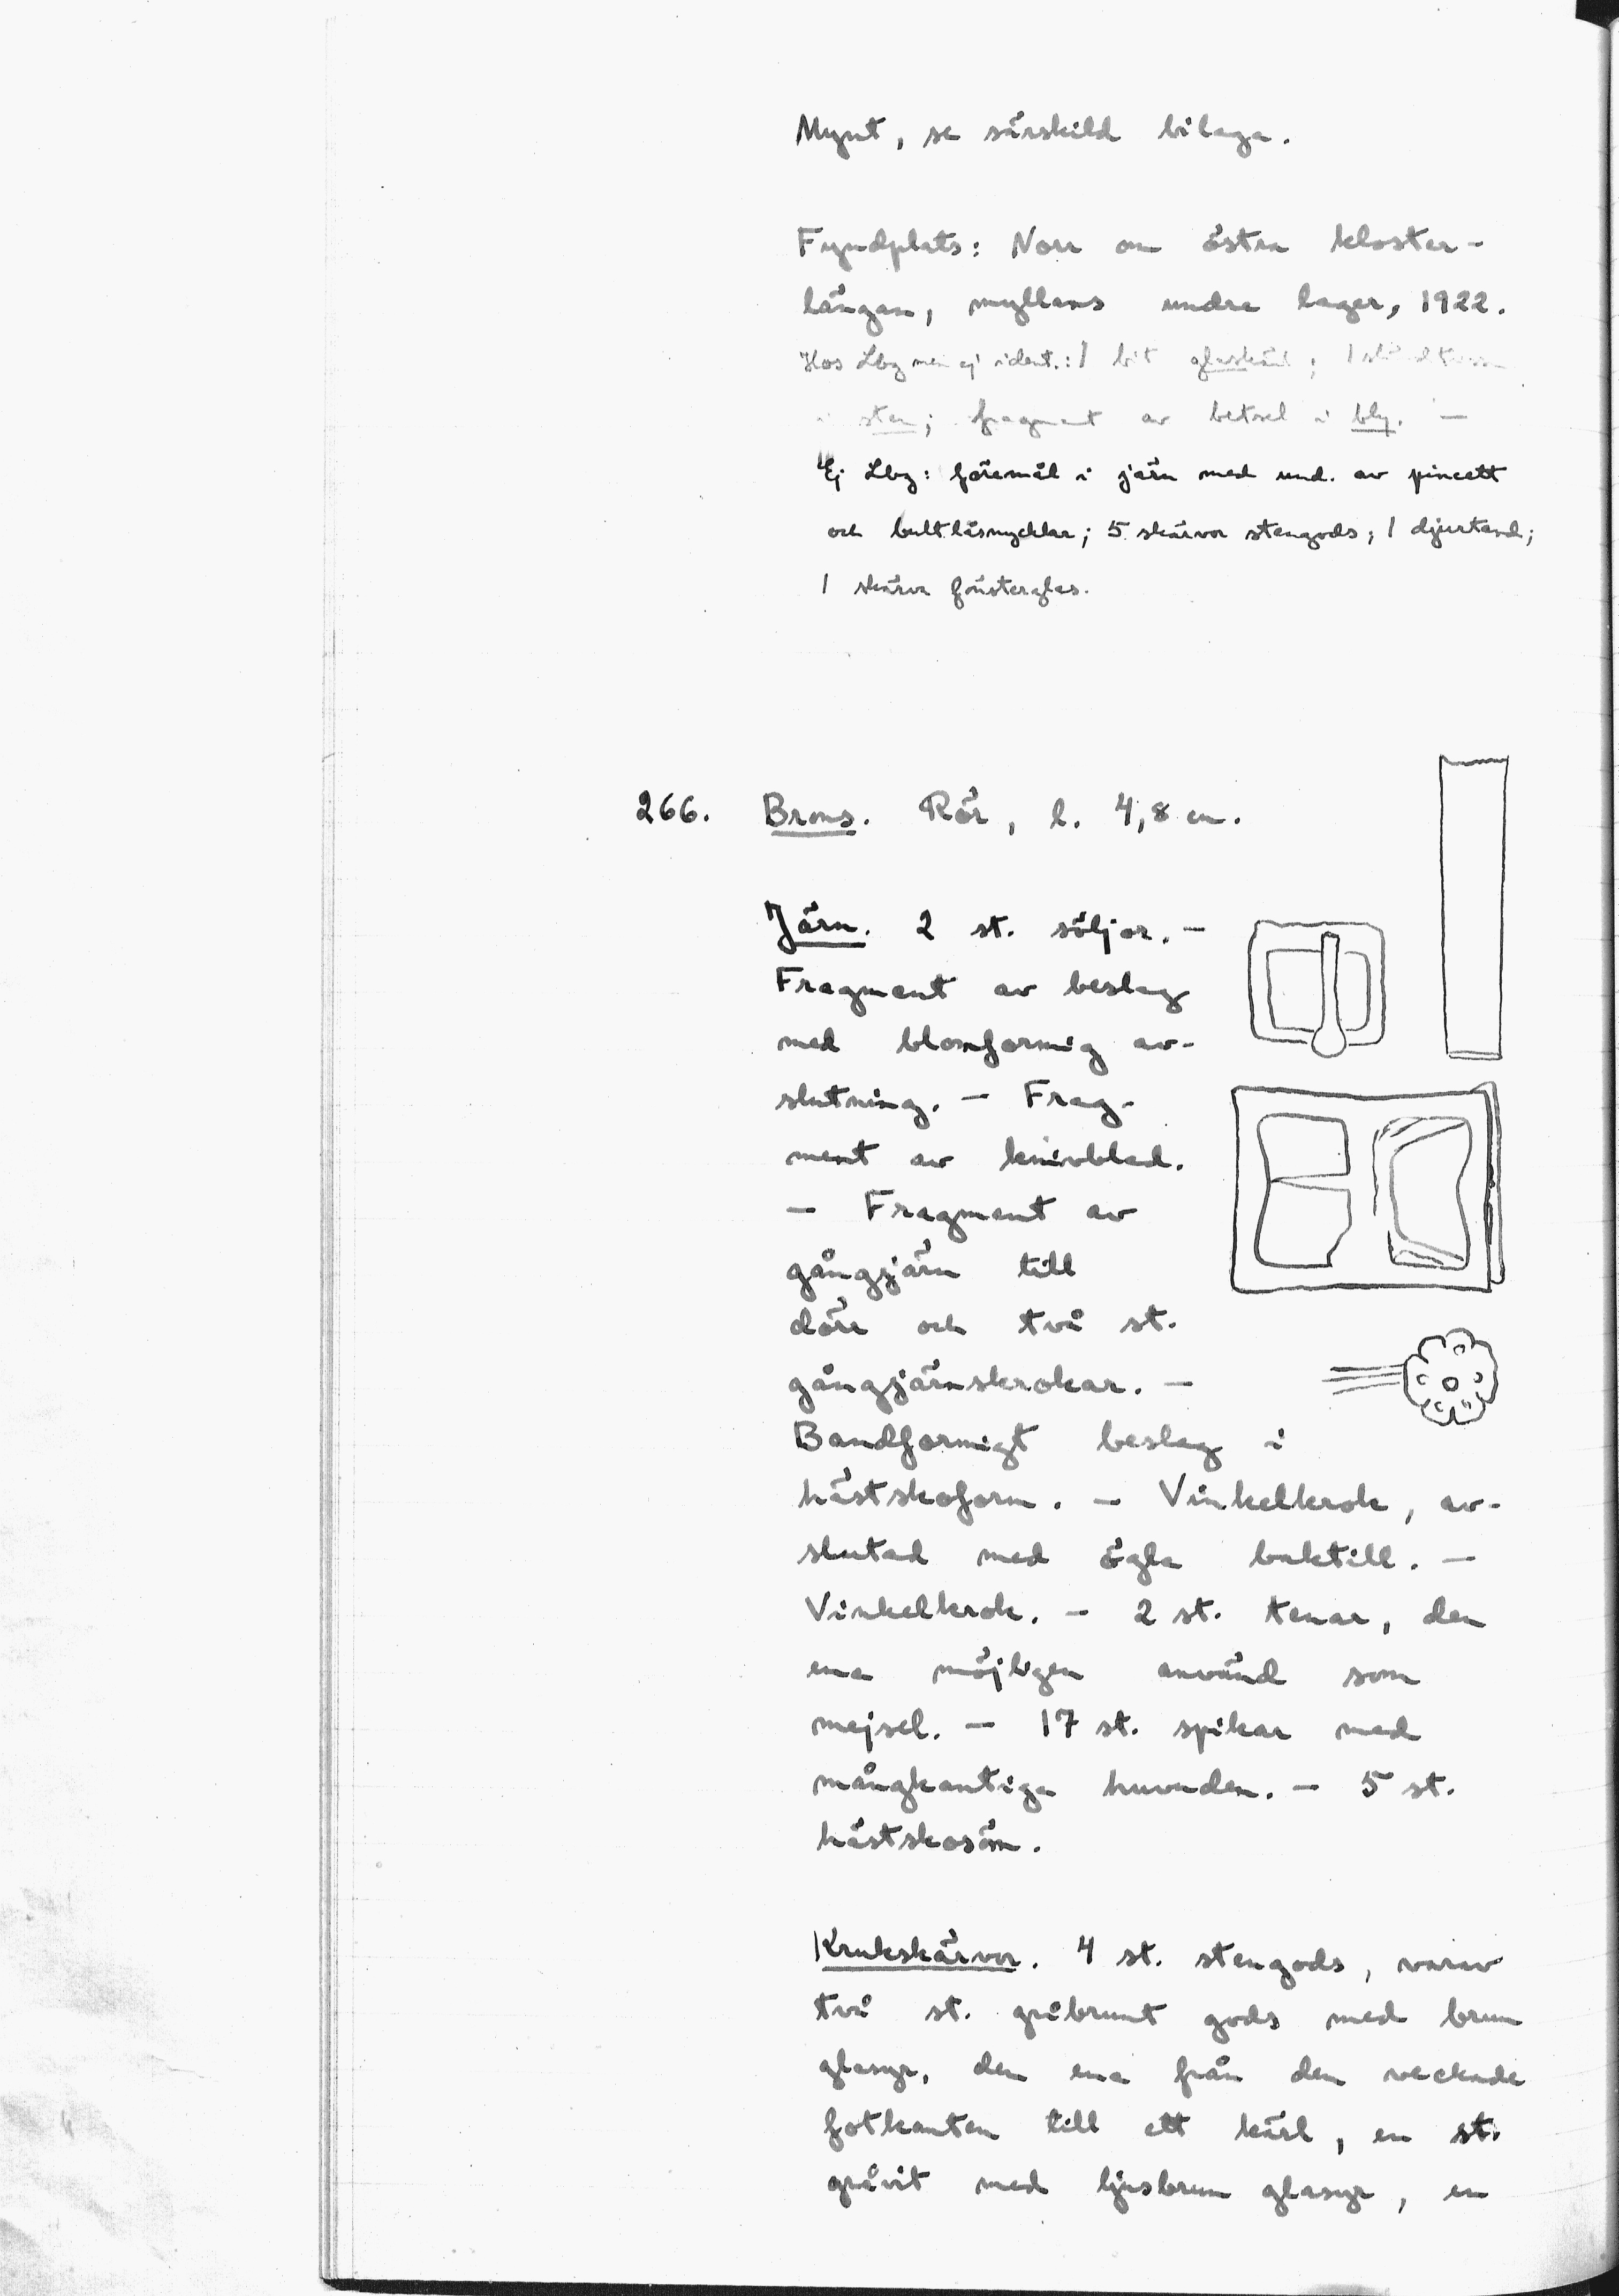 Mynt, se särskild bilaga.
Fyndplats: Norr om östra kloster-
längan, myllans undre lager, 1922.
Hos Lbg men ej ident.: 1 bit
i sten; fragment av betsel i bly. —
Ej Lbg: föremål i järn med und. av pincett
och bultlåsnycklar; 5 skärvor stengods; 1 djurtand;
1 skärva fönsterglas.
266. Brons. Rör, l. 4,8 cm.
Järn. 2 st. söljor. —
Fragment av beslag
med blomformig av-
slutning. — Frag-
ment av knivblad.
— Fragment av
gångjärn till
dörr och två st.
gångjärnskrokar. —
Bandformigt beslag i
hästskoform. — Vinkelkrok, av-
slutad med ögla baktill. —
Vinkelkrok. — 2 st. tenar, den
ena möjligen använd som
mejsel. — 17 st. spikar med
mångkantiga huvuden. — 5 st.
hästskosöm.
Krukskärvor. 4 st. stengods, varav
två st. gråbrunt gods med brun
glasyr, den ena från den veckade
fotkanten till ett kärl, en st.
gråvit med ljusbrun glasyr, en